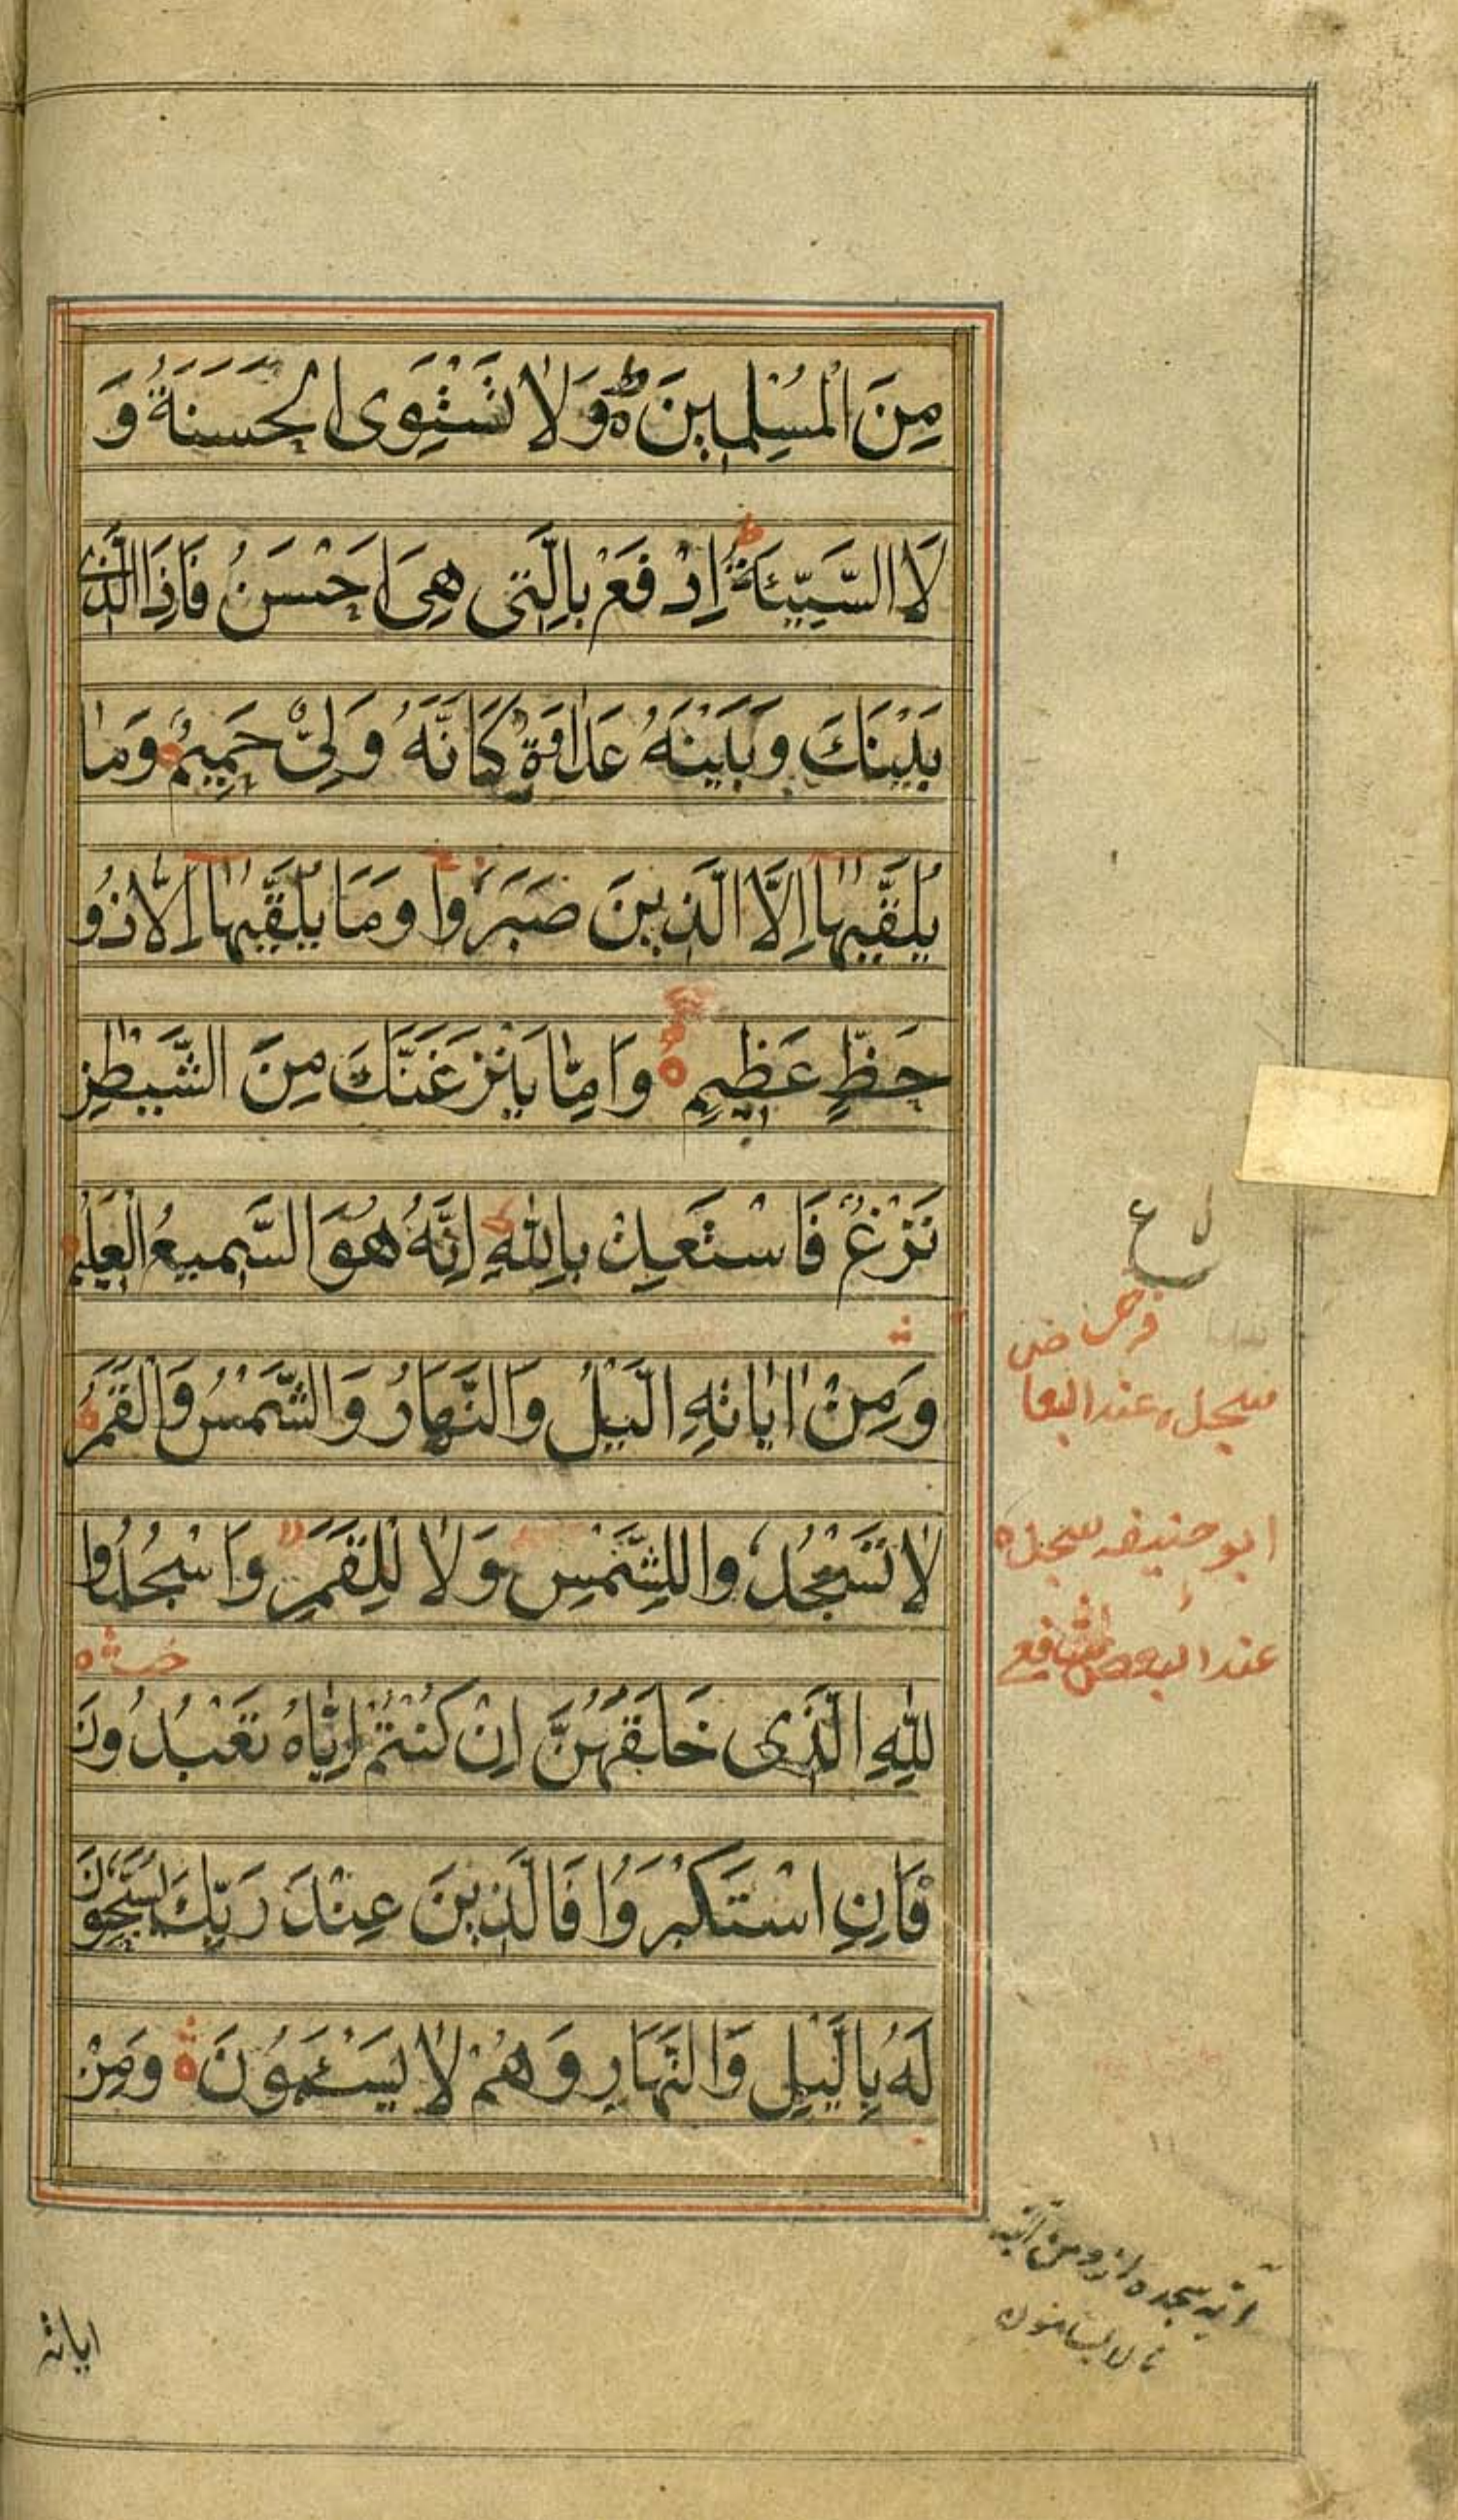 مِنَ الْمُسْلِمِينَ وَلَا تَسْتَوِى الْحَسَنَةُ وَ
لَا السَّيِّئَةُ اِدْفَعْ بِالَّتِى هِىَ اَحْسَنُ فَاِذَا الَّذِى
بَيْنَكَ وَبَيْنَهُ عَدَاوَةٌ كَاَنَّهُ وَلِىٌّ حَمِيمٌ وَمَا
يُلَقّٰيهَا اِلَّا الَّذِينَ صَبَرُوا وَمَا يُلَقّٰيهَا اِلَّا ذُو
حَظٍّ عَظِيمٍ وَاِمَّا يَنْزَغَنَّكَ مِنَ الشَّيْطٰنِ
نَزْغٌ فَاسْتَعِذْ بِاللّٰهِ اِنَّهُ هُوَ السَّمِيعُ الْعَلِيمُ
وَمِنْ اٰيَاتِهِ الَّيْلُ وَالنَّهَارُ وَالشَّمْسُ وَالْقَمَرُ
لَا تَسْجُدُوا لِلشَّمْسِ وَلَا لِلْقَمَرِ وَاسْجُدُوا
لِلّٰهِ الَّذِى خَلَقَهُنَّ اِنْ كُنْتُمْ اِيَّاهُ تَعْبُدُونَ
فَاِنِ اسْتَكْبَرُوا فَالَّذِينَ عِنْدَ رَبِّكَ يُسَبِّحُونَ
لَهُ بِالَّيْلِ وَالنَّهَارِ وَهُمْ لَا يَسْئَمُونَ وَمِنْ
ع
سجده عند
ابو حنيفه سجده
عند الشافع
آيه سجده از ومن آياته
تا لا يسامون
اياته